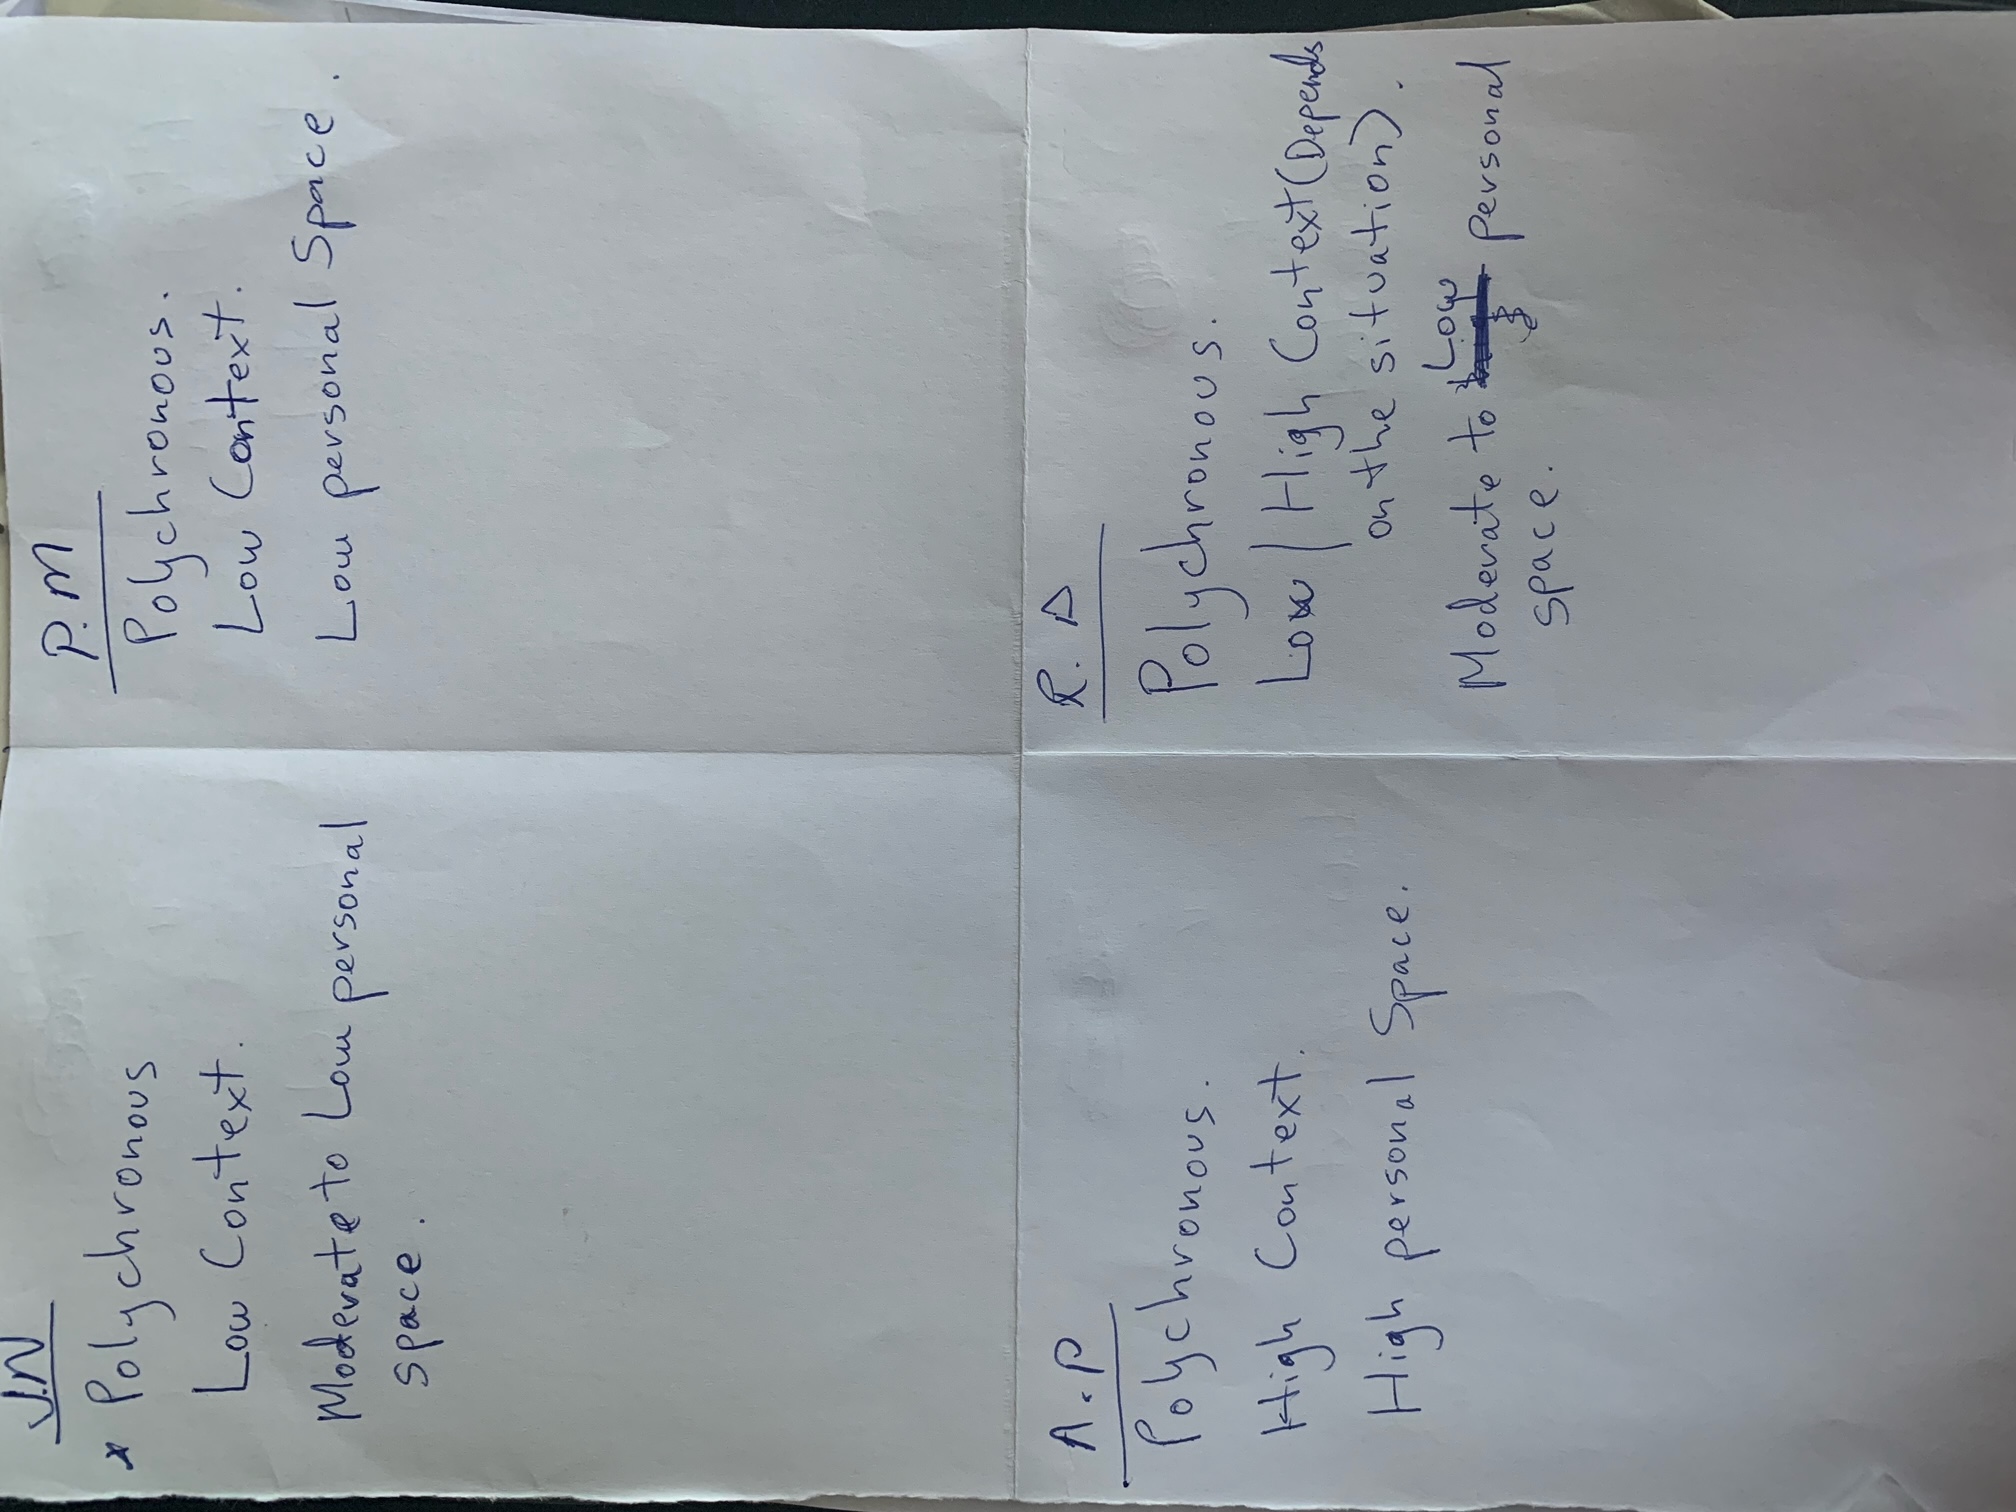 V.N
* Polychronous
Low Context.
Moderate to Low personal
space.
P.M
Polychronous.
Low Context.
Low personal Space.
A.P
Polychronous.
High Context.
High personal Space.
R. D
Polychronous.
Low / High Context (Depends
on the situation).
Moderate to Low personal
space.